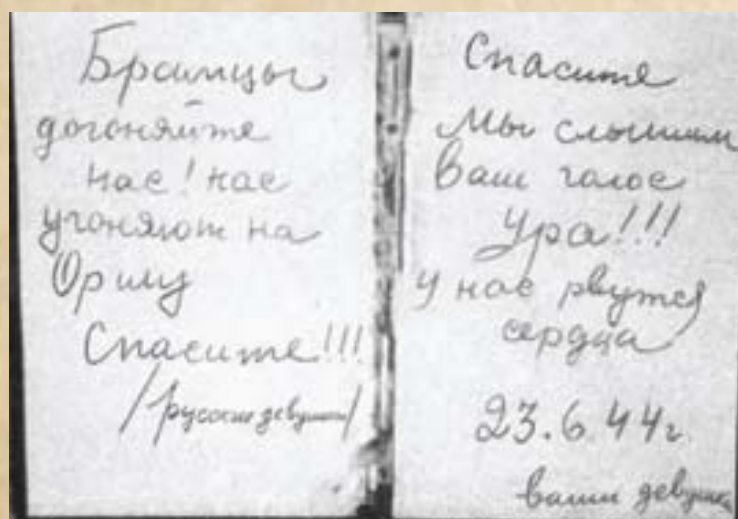 Братцы
догоняйте
нас! нас
угоняют на
Оршу
Спасите!!!
/русские девушки/
Спасите
Мы слышим
ваш голос
Ура!!!
у нас рвутся
сердца
23.6.44г.
ваши девушки